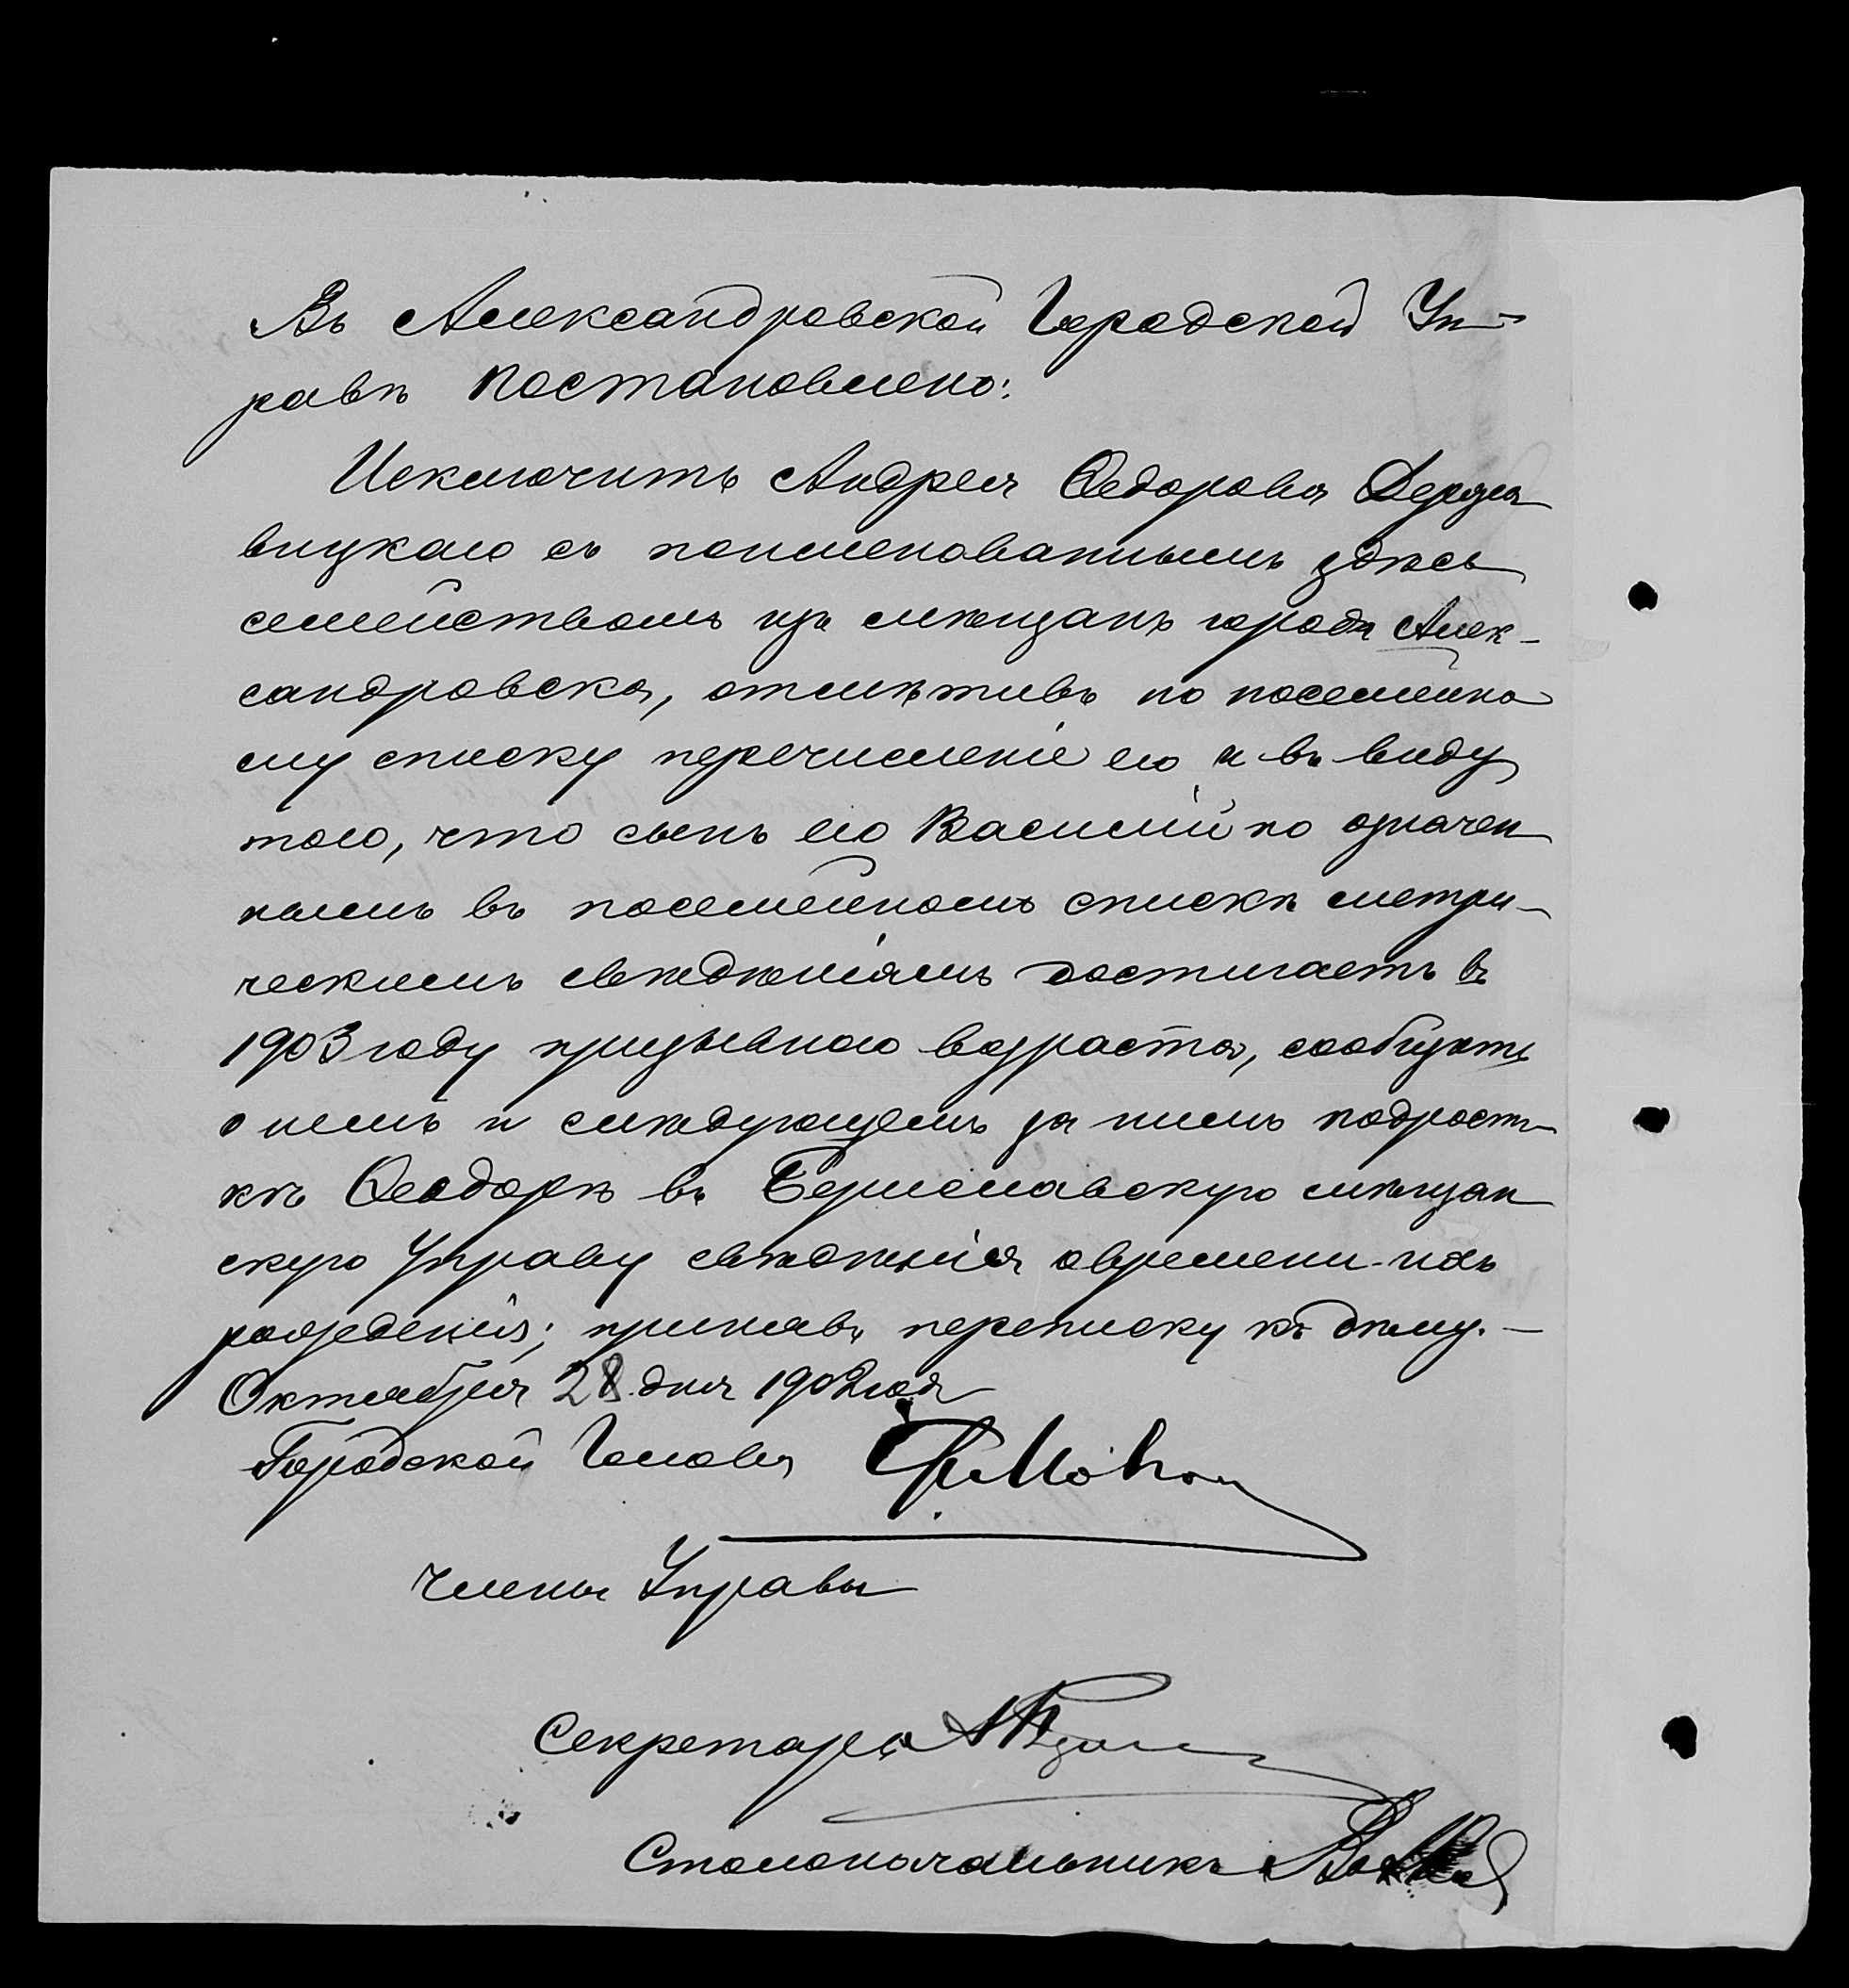 Въ Александровской Городской Уп-
равѣ постановлено:
Исключить Андрея Ѳедорова Дердя
вицкаго съ поименованнымъ здѣсь
семействомъ изъ мѣщанъ города Алек-
сандровска, отмѣтивъ по посемейно
му списку перечисленіе его и въ виду
того, что сынъ его Василій по означен
нымъ въ посемейномъ спискѣ метри-
ческимъ свѣдѣніямъ достигаетъ въ
1903 году призывного возраста, сообщить
о немъ и слѣдующемъ за нимъ подрост-
кѣ Ѳеодорѣ въ Бериславскую мѣщан
скую Управу свѣдѣнія о времени ихъ
рожденія; пришивъ переписку къ дѣлу. —
Октября 28 дня 1902 года
Городской Голова
Члены Управы
Секретарь
Столоначальникъ